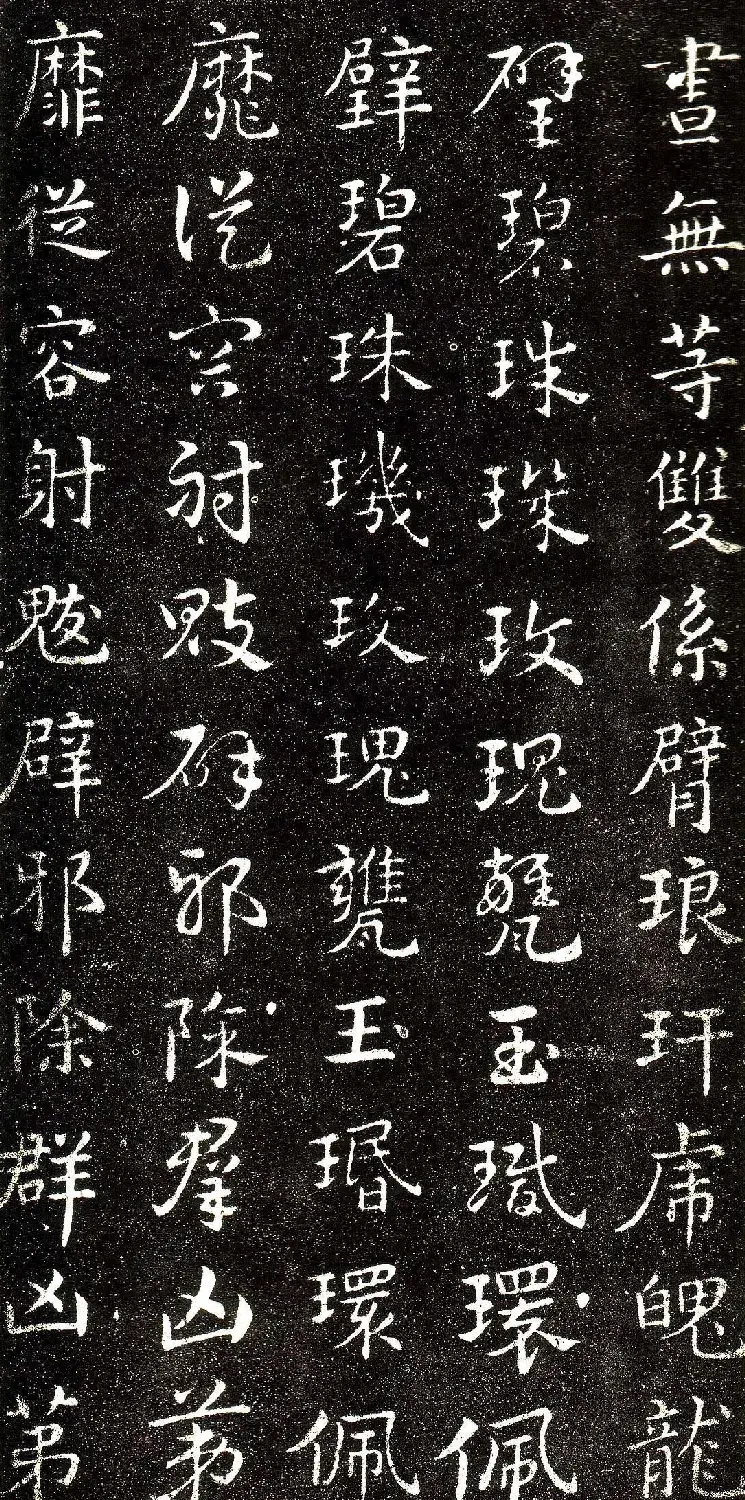 畫無等雙係臂琅玕虎魄龍
璧碧珠璣玫瑰甕玉環佩
璧碧珠璣玫瑰甕玉瑉環佩
靡從容射魃辟邪除群凶第
靡從容射魃辟邪除群凶第